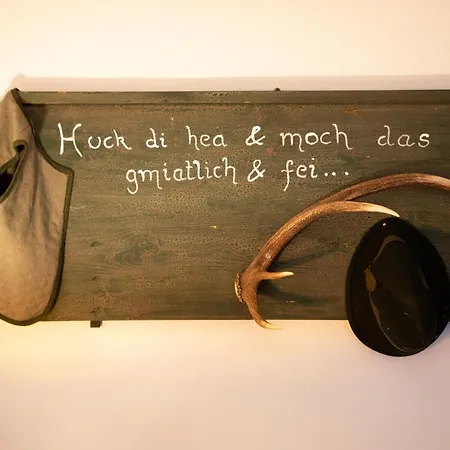 Huck di hea & moch das
gmiatlich & fei...